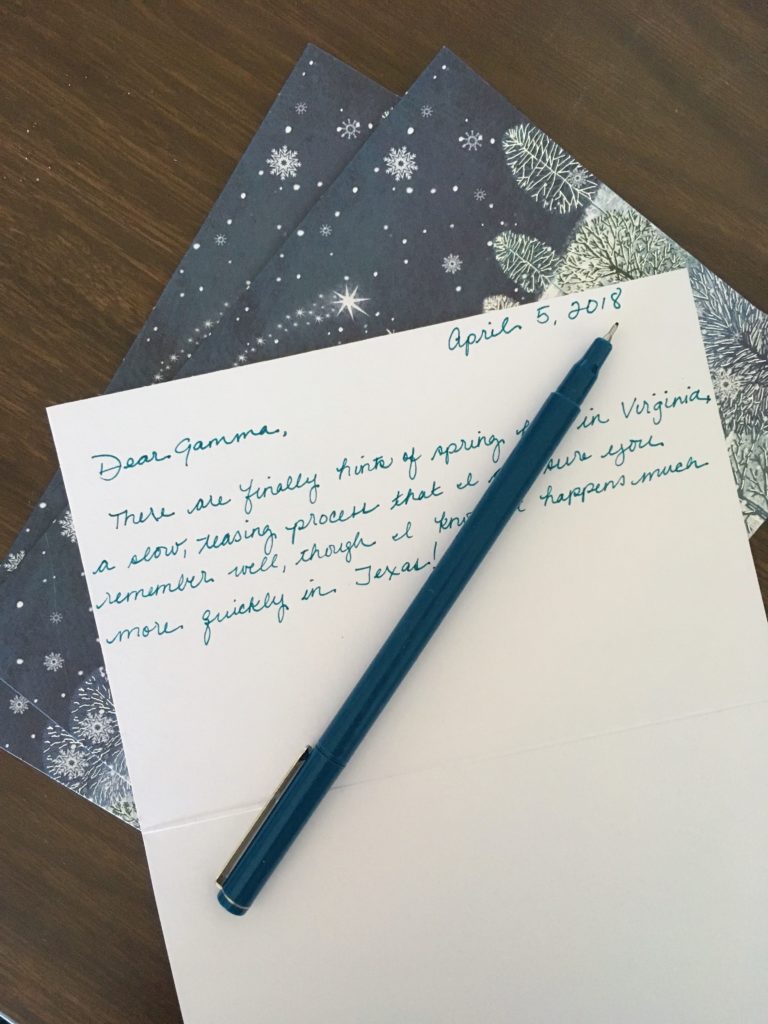 April 5, 2018
Dear Gamma,
There are finally hints of spring in Virginia,
a slow, teasing process that I sure you
remember well, though I happens much
more quickly in Texas!